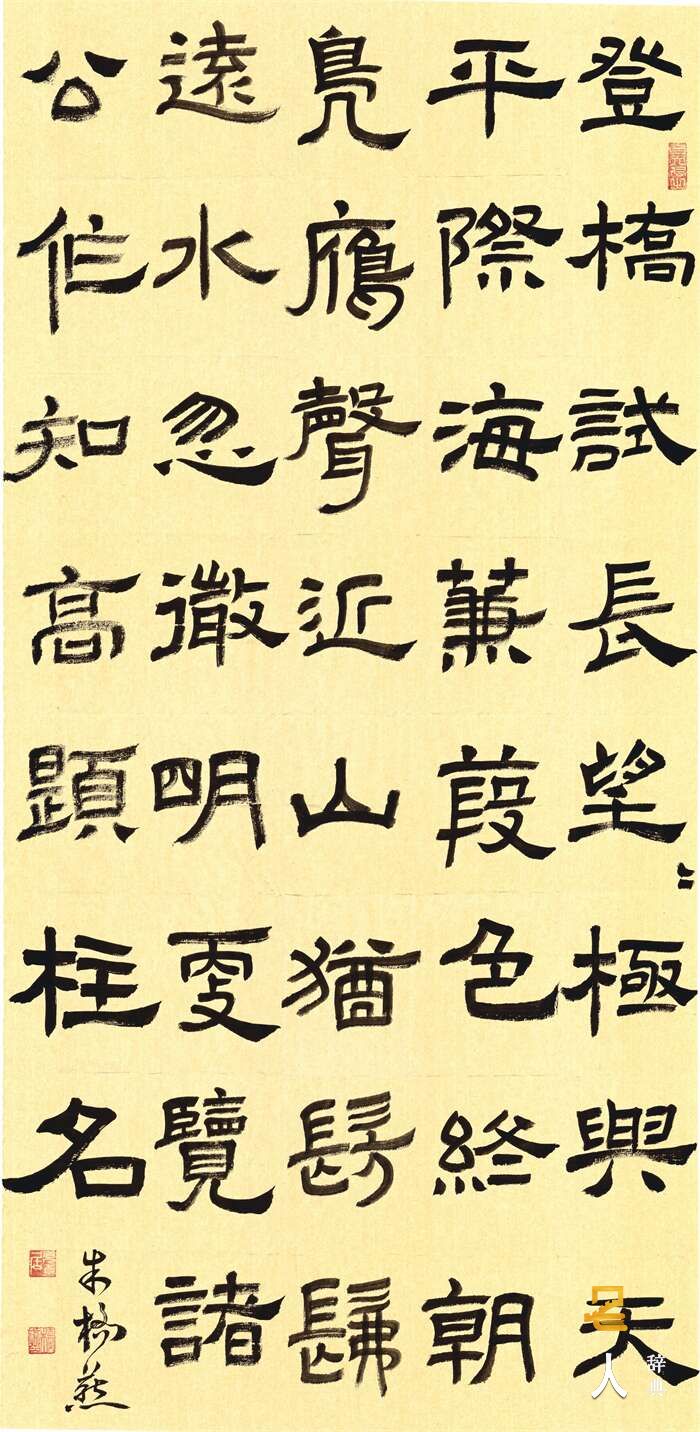 登橋試長望〻極與天
平際海蒹葭色終朝
鳧鴈聲近山猶髣髴
遠水忽微明更覽諸
公作知高題柱名
朱
名人辞典